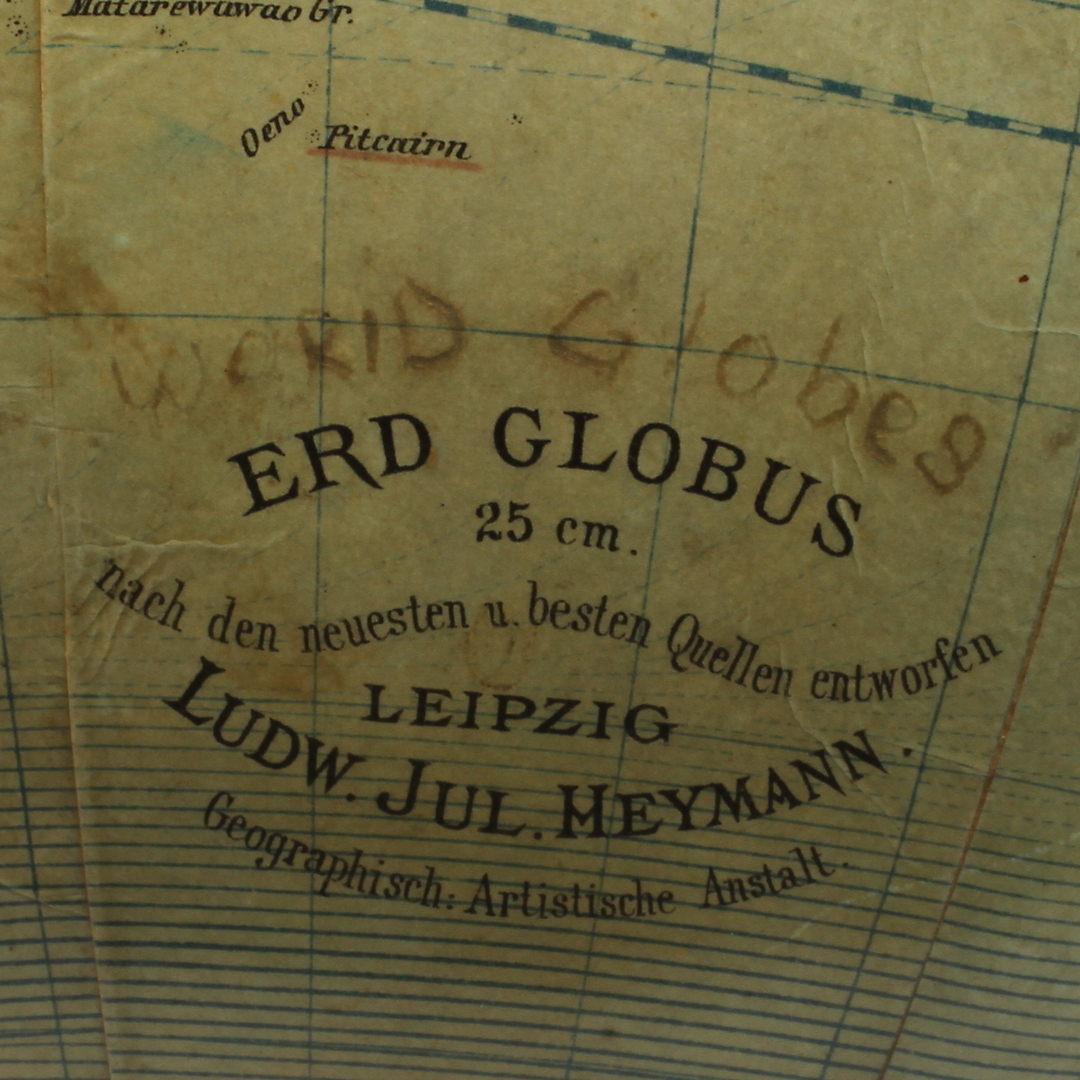 Matarewawao Gr.
Oeno
Pitcairn
WORlD Globes
ERD GLOBUS
25 cm.
nach den neuesten u. besten Quellen entworfen
LEIPZIG
LUDW. JUL. HEYMANN.
Geographisch: Artistische Anstalt.